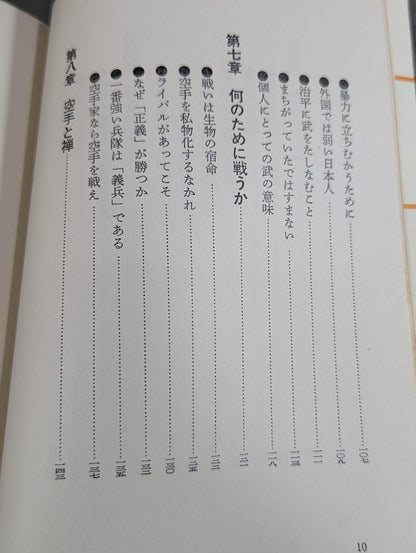 ●暴力に立ちむかうために……一〇七
●外国では弱い日本人……一〇九
●治平に武をたしなむこと……一一一
●まちがっていたではすまない……一一三
●個人にとっての武の意味……一一八
第七章 何のために戦うか……一二一
●戦いは生物の宿命……一二三
●空手を私物化するなかれ……一二五
●ライバルがあってこそ……一三〇
●なぜ「正義」が勝つか……一三二
●一番強い兵隊は「義兵」である……一三五
●空手家なら空手を戦え……一三七
第八章 空手と禅……一四三
10